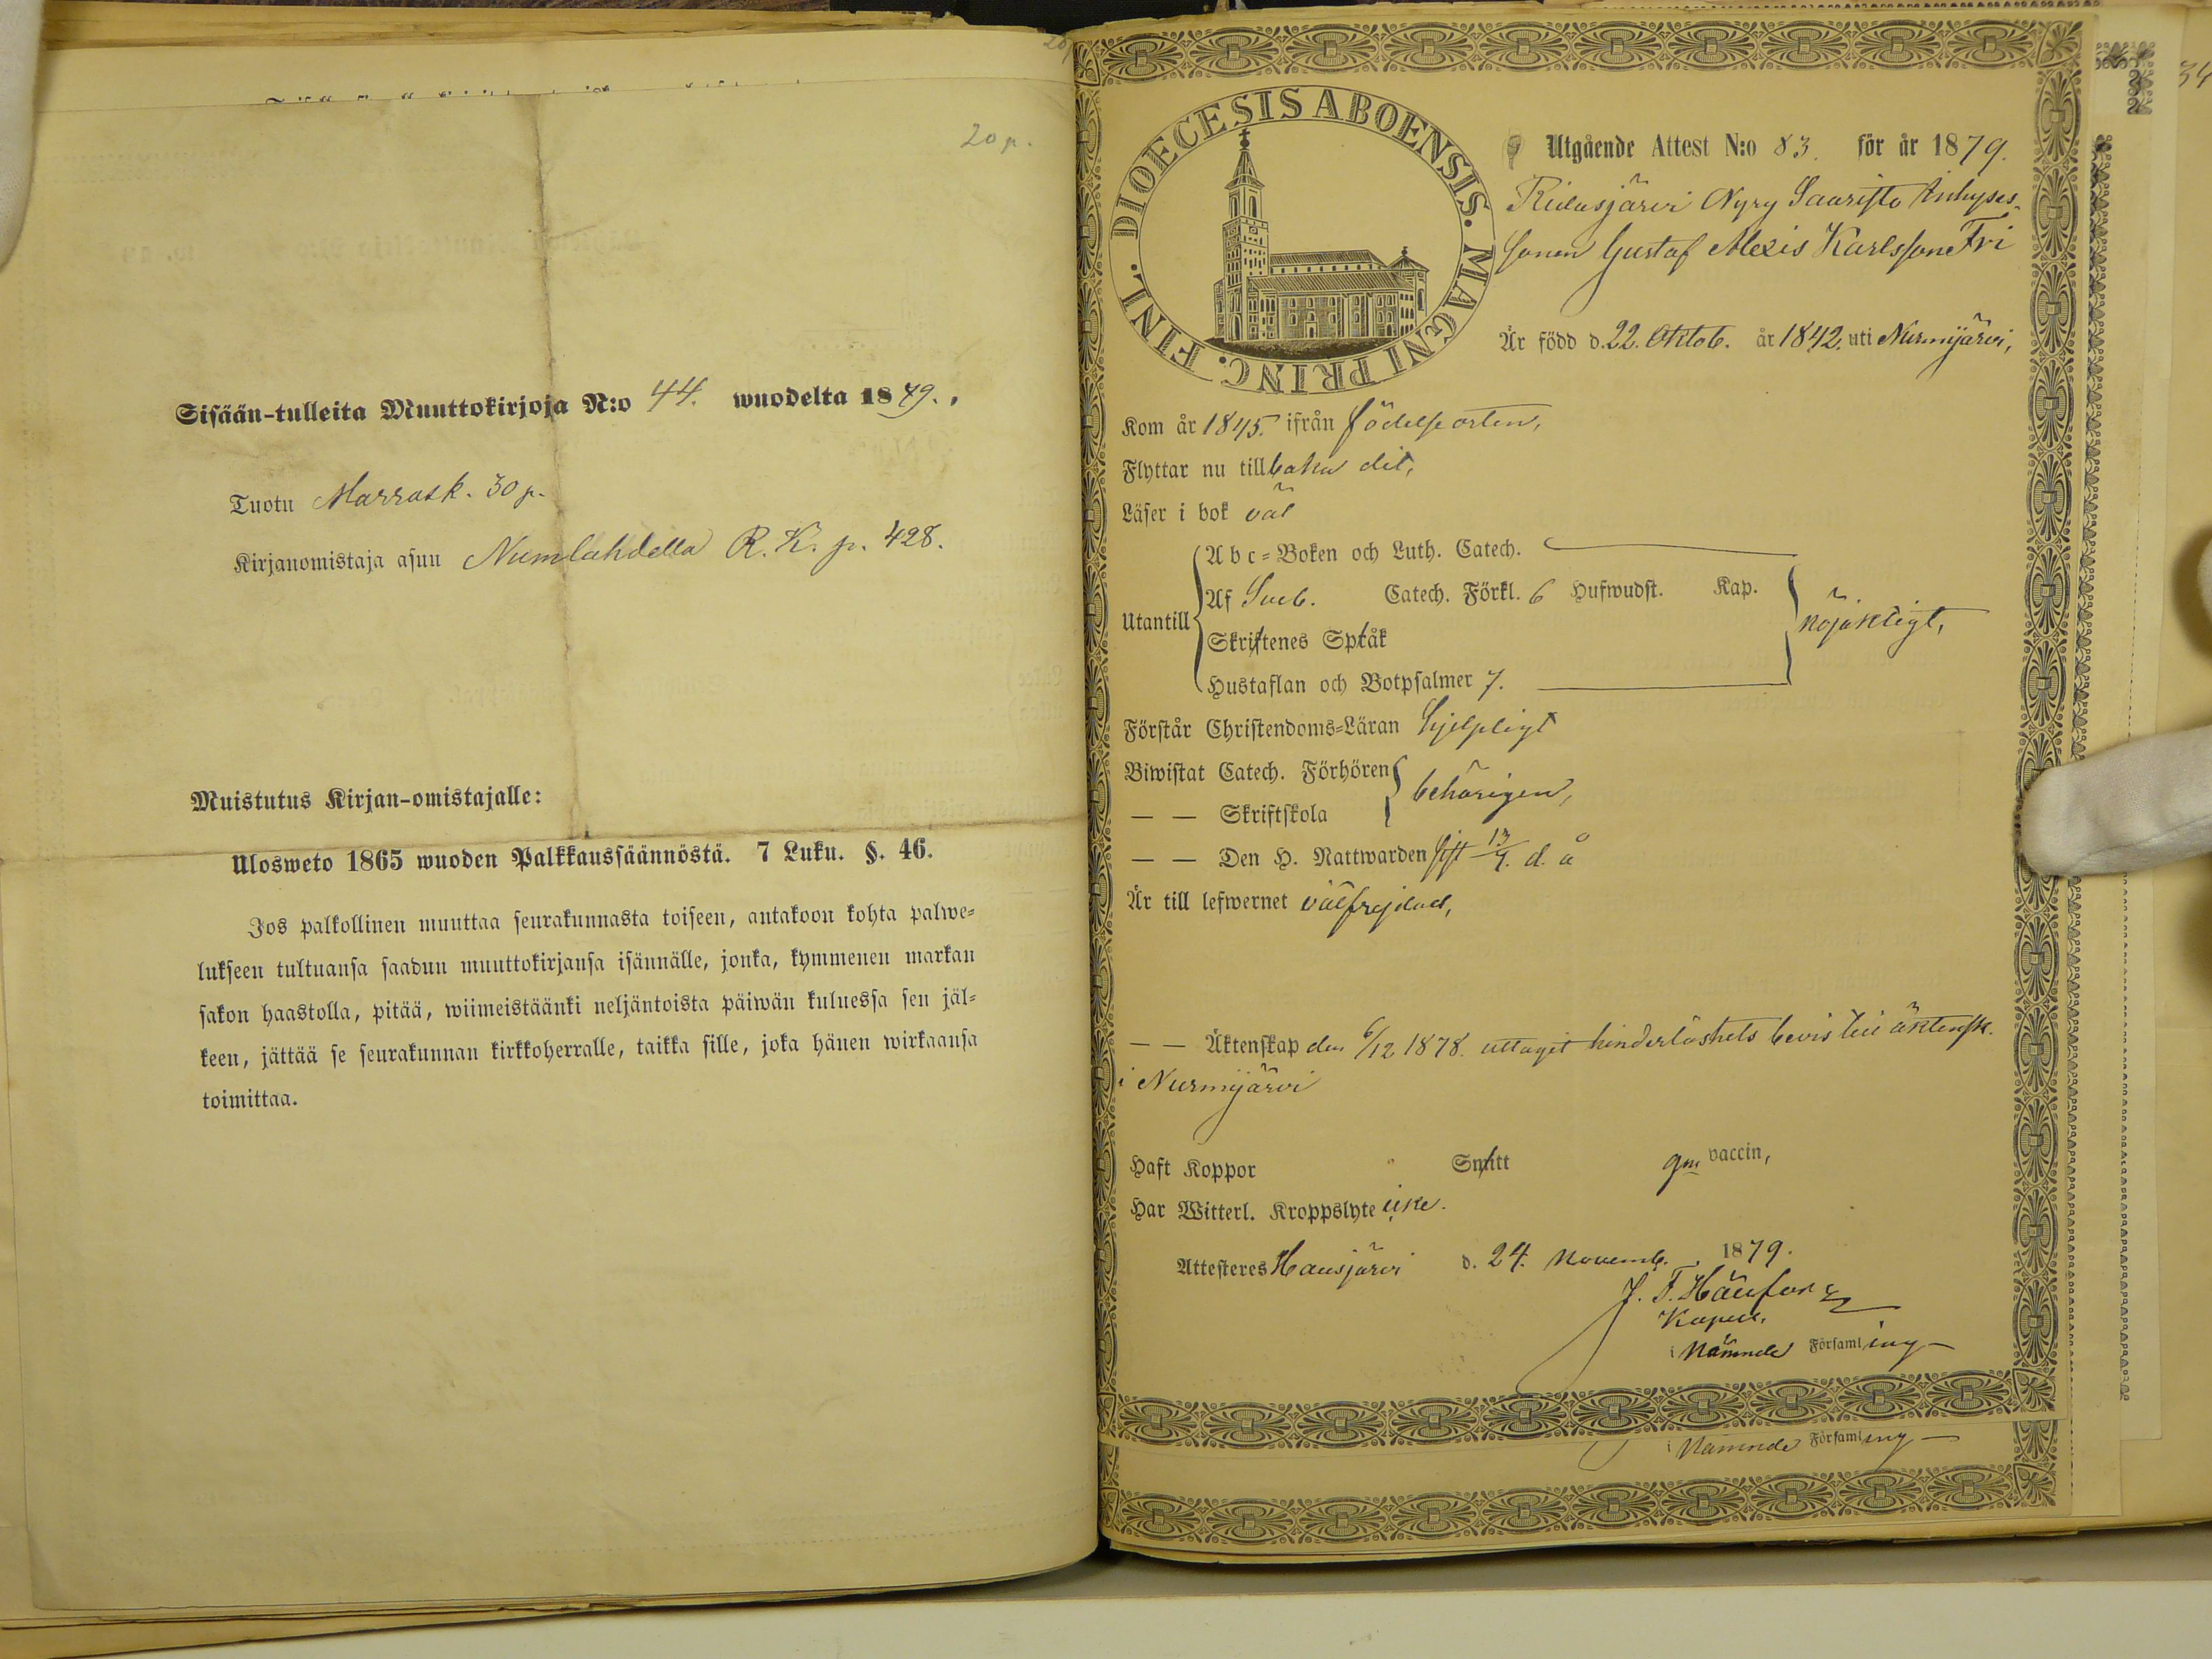 20 p.
Sisään-tulleita Muuttokirjoja N:o 44. wuodelta 1879.
Tuotu Marrask. 30 p.
Kirjanomistaja asuu Numlahdella R. K. p. 428.
Muistutus Kirjan-omistajalle:
Ulosweto 1865 wuoden Palkkaussäännöstä. 7 Luku. §. 46.
Jos palkollinen muuttaa seurakunnasta toiseen, antakoon kohta palwe=
lukseen tultuansa saadun muuttokirjansa isännälle, jonka, kymmenen markan
sakon haastolla, pitää, wiimeistäänki neljäntoista päiwän kuluessa sen jäl=
keen, jättää se seurakunnan kirkkoherralle, taikka sille, joka hänen wirkaansa
toimittaa.
DIOECESIS ABOENSIS. MAGNI PRINC. FINL.
Utgående Attest N:o 83. för år 1879.
Ridasjärvi Nyry Saaristo Inhyses-
sonen Gustaf Alexis Karlsson Fri
Är född d. 22. Oktob. år 1842. uti Nurmijärvi,
Kom år 1845. ifrån födelseorten,
Flyttar nu tillbaka dit,
Läser i bok väl
Utantill
Abc=Boken och Luth. Catech.
Af Sveb. Catech. Förkl. 6 Hufwudst. Kap.
Skriftenes Språk
nöjaktigt,
Hustaflan och Botpsalmer 7.
Förstår Christendoms=Läran hjelpligt
Biwistat Catech. Förhören
behörigen,
— — Skriftskola
— — Den H. Nattwarden sist 13/7. d. å
Är till lefwernet välfrejdad,
— — Äktenskap den 6/12 1878. uttagit hinderlöshets bevis till äktensk.
i Nurmijärvi
Haft Koppor Smitt gm vaccin,
Har Witterl. Kroppslyte icke.
Attesteres Hausjärvi d. 24. Novemb. 1879.
Kapell.
i Nämnde Församling
i Nämnde Församling
34